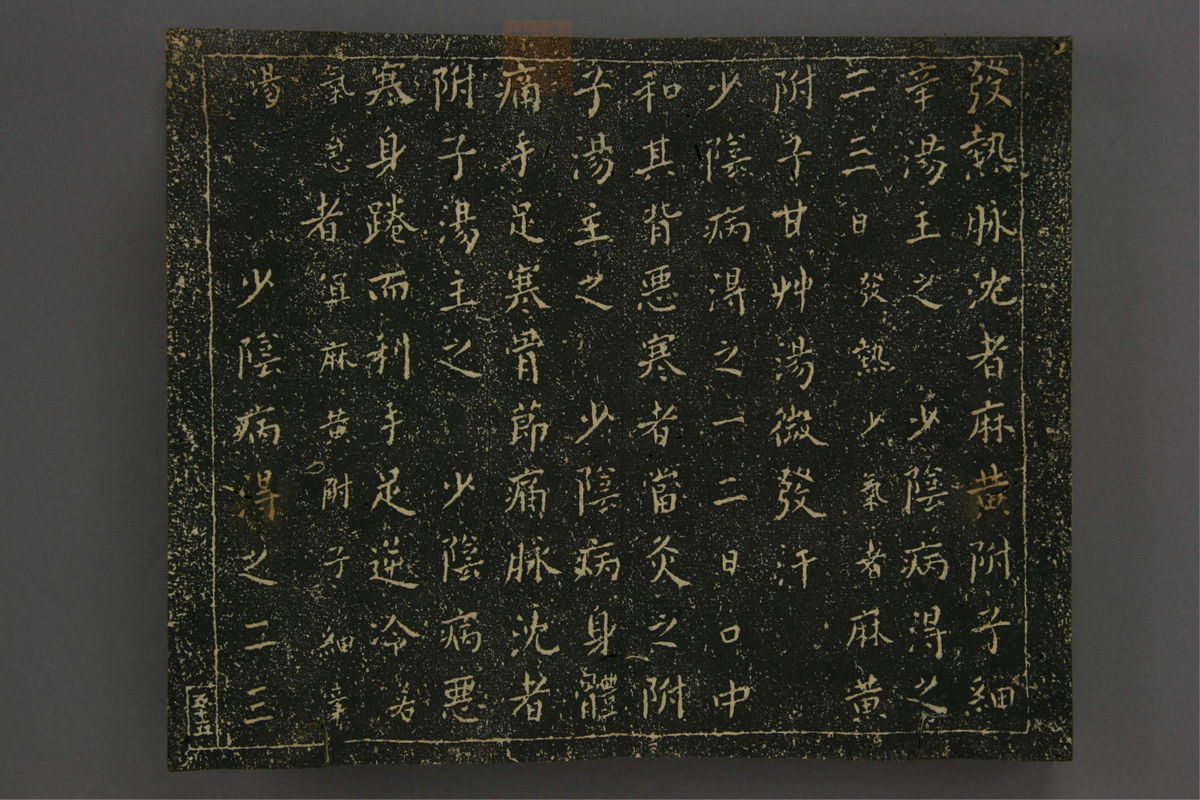 發熱脉沈者麻黄附子細
辛湯主之　少陰病得之
二三日發熱少氣者麻黄
附子甘艸湯微發汗
少陰病得之一二日口中
和其背悪寒者當灸之附
子湯主之　少陰病身體
痛手足寒骨節痛脉沈者
附子湯主之　少陰病悪
寒身踡而利手足逆冷若
氣急者宜麻黄附子細辛
湯　少陰病得之二三
五十五